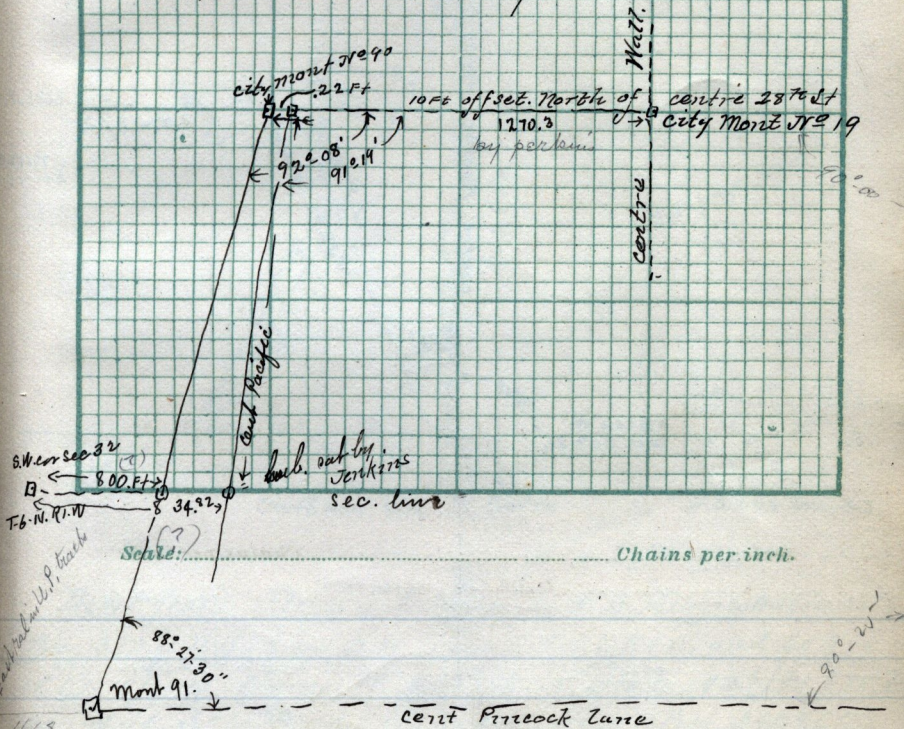 Wall.
city mont No 90
.22 Ft
10 Ft offset. North of centre 28th St
1270.3
City Mont No 19
by perkins
92°-08'
91°-19'
90°-00
centre
cent Pacific
S.W. cor sec 32
(?)
800. Ft
T-6-N. R1.W
8 34.82
set by
Jenkins
sec. line
(?)
Scale: Chains per inch.
88°-27'-30"
90°-20'
Mont 91.
cent Pincock lane